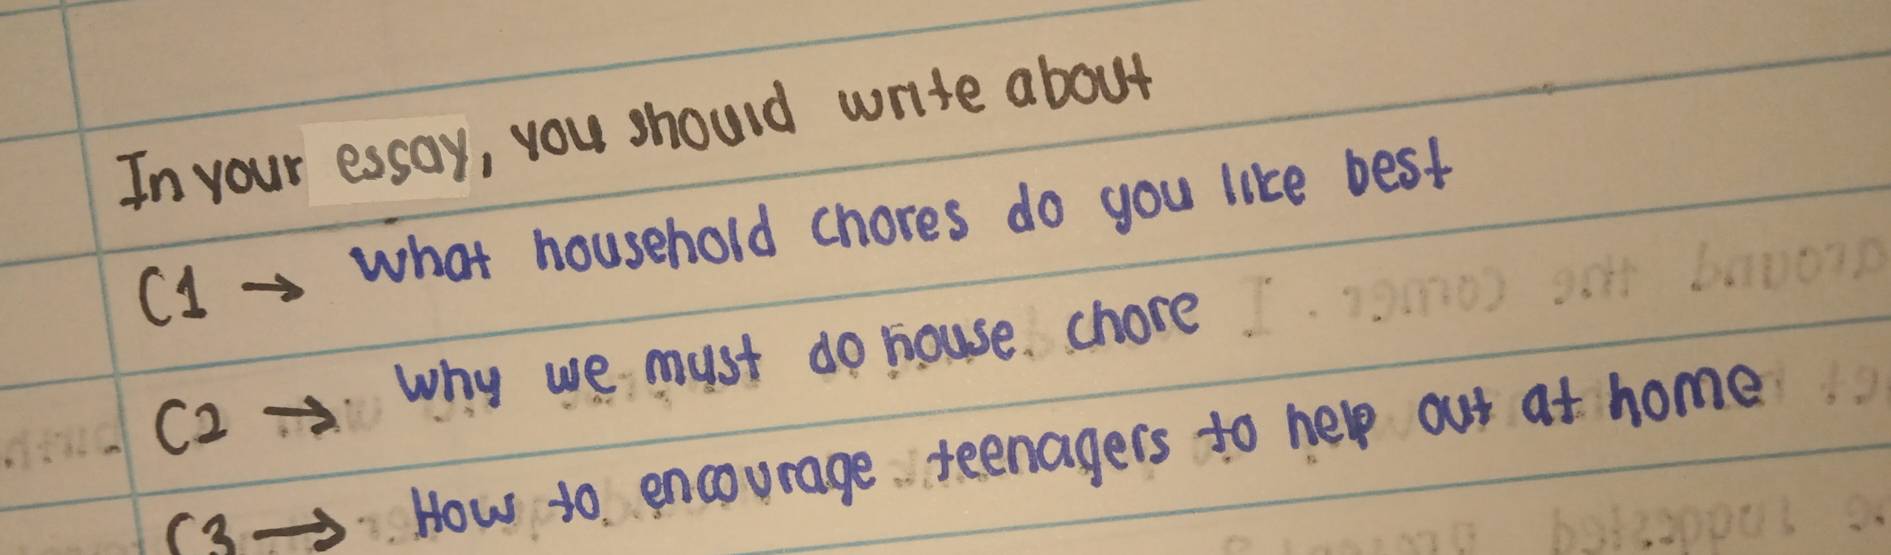 In your essay, you should write about
C1 → What household chores do you like best
C2 → Why we must do house chore
C3 → How to encourage teenagers to help out at home